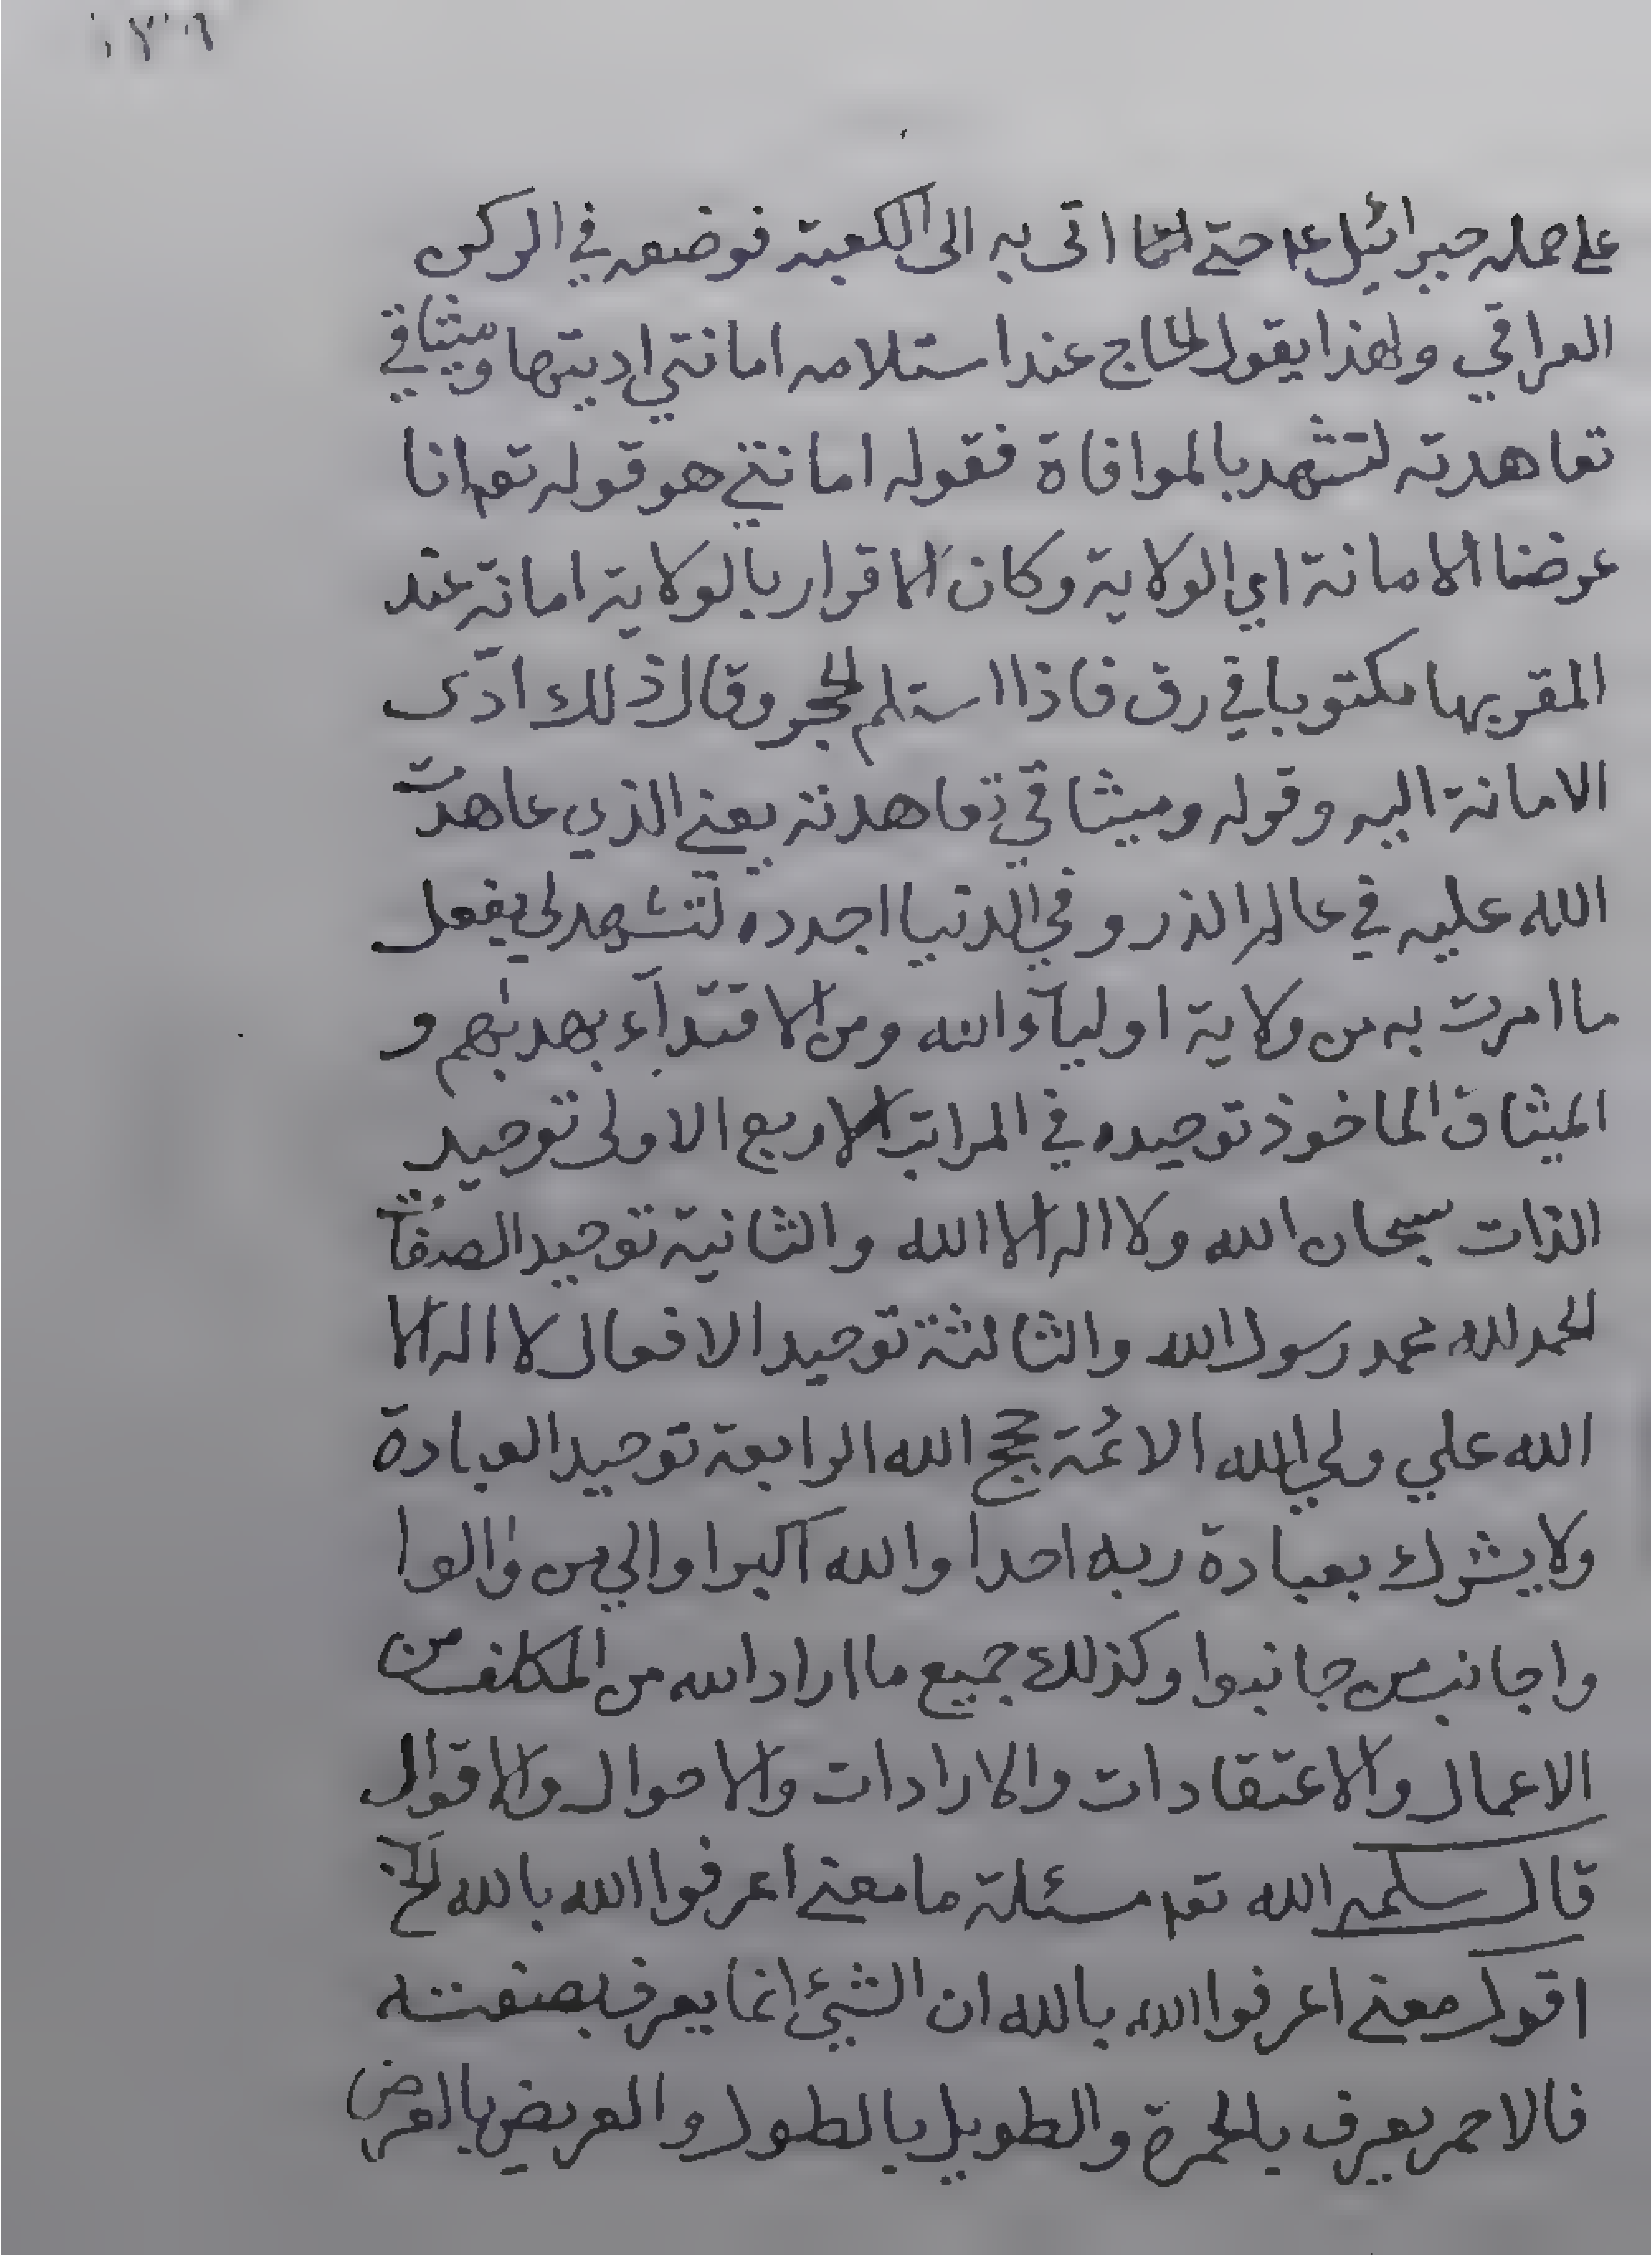 على حمله جبرائيل ع حتى لما اتى به الى الكعبة فوضعه في الركن
العراقي ولهذا يقول الحاج عند استلامه امانتي اديتها وميثاقي
تعاهدته لتشهد بالموافاة فقوله امانتي هو قوله تعه انا
عرضنا الامانة اي الولاية وكان الاقرار بالولاية امانة عند
المقر بها مكتوبا في رق فاذا استلم الحجر وقال ذلك ادّى
الامانة اليه وقوله وميثاقي تعاهدته يعني الذي عاهدت
الله عليه في عالم الذر وفي الدنيا اجدده لتشهد لي بفعل
ما امرت به من ولاية اولياۤء الله ومن الاقتداۤء بهديهم و
الميثاق الماخوذ توحيده في المراتب الاربع الاولى توحيد
الذات سبحان الله ولا اله الا الله والثانية توحيد الصفات
الحمد لله محمد رسول الله والثالثة توحيد الافعال لا اله الا
الله علي ولي الله الائمة حجج الله الرابعة توحيد العبادة
ولا يشرك بعبادة ربه احدا والله اكبر اوالي من والوا
واجانب من جانبوا وكذلك جميع ما اراد الله من المكلف من
الاعمال والاعتقادات والارادات والاحوال والاقوال
قال سلمه الله تعه مسئلة ما معنى اعرفوا الله بالله الخ
اقول معنى اعرفوا الله بالله ان الشيئ انما يعرف بصفته
فالاحمر يعرف بالحمرة والطويل بالطول والعريض بالعرض